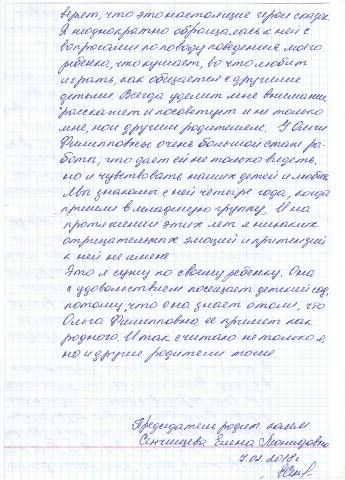 верят, что это настоящие герои сказок.
Я неоднократно обращалась к ней с
вопросами по поводу поведения моего
ребёнка, что кушает, во что любит
играть, как общается с другими
детьми. Всегда уделит мне внимание
расскажет и посоветует и не только
мне, но и другим родителям. У Ольги
Филипповны очень большой стаж ра-
боты, что даёт ей не только видеть,
но и чувствовать наших детей и любить.
Мы знакомы с ней четыре года, когда
пришли в младшую группу. И на
протяжении этих лет я никаких
отрицательных эмоций и притензий
к ней не имела
Это я сужу по своему ребенку. Она
с удовольствием посещает детский сад,
потому, что она знает о том, что
Ольга Филипповна её примет как
родного. И так считаю не только я,
но и другие родители тоже.
Председатель родит. комит
Елена Леонидовна
7.02.2018г